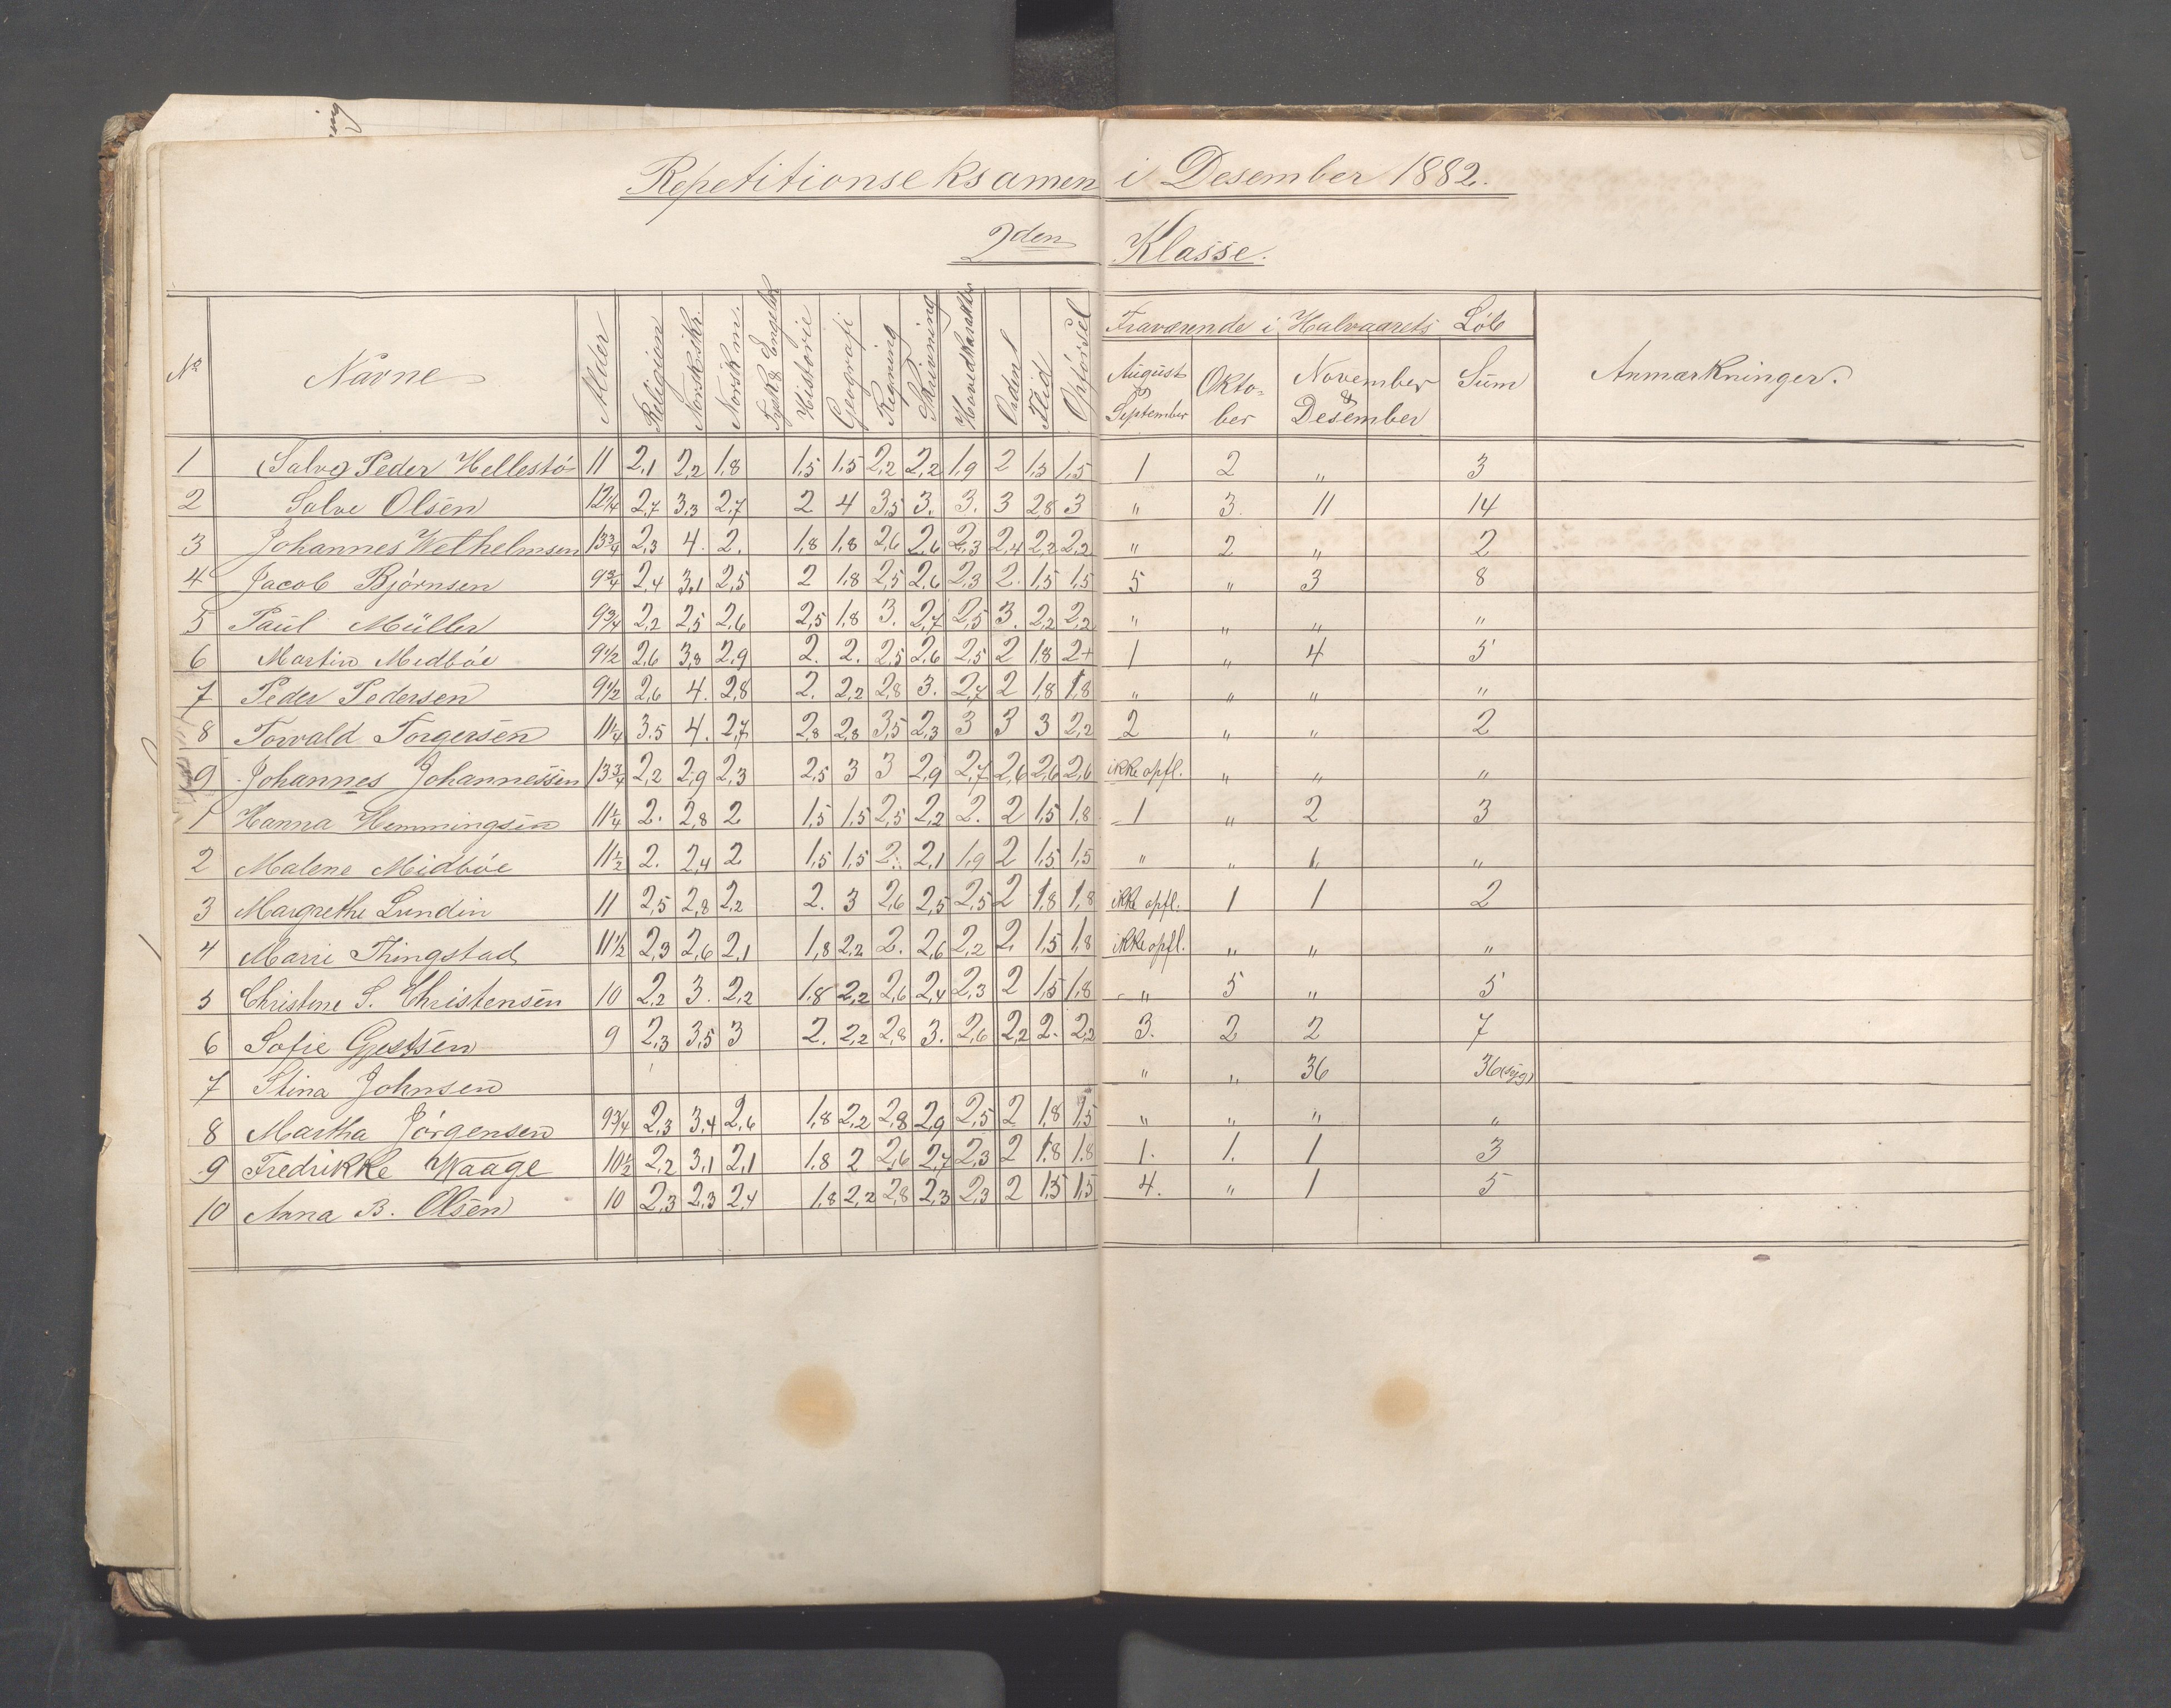 Repetitionseksamen i Desember 1882.
2den Klasse.
No Navne Alder Religion Norsk skr. Norsk m. Tysk & Engelsk Historie Geografi Regning Skrivning Hovedkarakter Orden Flid Opførsel Fraværende i Halvaarets Løb Anmærkninger.
August & September Oktober November & Desember Sum
1 (Salve) Peder Hellestø 11 2,1 2,2 1,8 1,5 1,5 2,2 2,2 1,9 2 1,5 1,5 1 2 " 3
2 Salve Olsen 12 1/4 2,7 3,3 2,7 2 4 3,5 3. 3. 3 2,8 3 " 3. 11 14
3 Johannes Wethelmsen 13 3/4 2,3 4. 2. 1,8 1,8 2,6 2,6 2,3 2,4 2,2 2,2 " 2 " 2
4 Jacob Bjørnsen 9 3/4 2,4 3,1 2,5 2 1,8 2,5 2,6 2,3 2. 1,5 1,5 5 " 3 8
5 Paul Müller 9 3/4 2,2 2,5 2,6 2,5 1,8 3. 2,7 2,5 3. 2,2 2,2 " " " "
6 Martin Midbøe 9 1/2 2,6 3,8 2,9 2. 2. 2,5 2,6 2,5 2 1,8 2+ 1 " 4 5
7 Peder Pedersen 9 1/2 2,6 4. 2,8 2. 2,2 2,8 3. 2,7 2 1,8 1,8 " " " "
8 Torvald Torgersen 11 1/4 3.5 4. 2,7 2,8 2,8 3,5 2,3 3 3 3 2,2 2 " " 2
9 Johannes Johannessen 13 3/4 2,2 2,9 2,3 2,5 3 3 2,9 2,7 2,6 2,6 2,6 ikke opfl. " " "
1 Hanna Hemmingsen 11 1/4 2. 2,8 2 1,5 1,5 2,5 2,2 2. 2 1,5 1,8 1 " 2 3
2 Malene Midbøe 11 1/2 2. 2,4 2 1,5 1,5 2. 2,1 1,9 2 1,5 1,5 " " " "
3 Margrethe Lundin 11 2,5 2,8 2,2 2. 3 2,6 2,5 2,5 2 1,8 1,8 ikke opfl. 1 1 2
4 Marie Thingstad 11 1/2 2,3 2,6 2,1 1,8 2,2 2. 2,6 2,2 2 1,5 1,8 ikke opfl. " " "
5 Christine S. Christensen 10 2,2 3. 2,2 1,8 2,2 2,6 2,4 2,3 2 1,5 1,8 " 5 " 5
6 Sofie Gjestsen 9 2,3 3,5 3 2. 2,2 2,8 3. 2,6 2,2 2. 2,2 3. 2 2 7
7 Stina Johnsen " " 36 36 (syg)
8 Martha Jørgensen 9 3/4 2,3 3,4 2,6 1,8 2,2 2,8 2,9 2,5 2 1,8 1,5 " " " "
9 Fredrikke Waage 10 1/2 2,2 3,1 2,1 1,8 2 2,6 2,7 2,3 2 1,8 1,8 1. 1. 1 3
10 Anna B. Olsen 10 2,3 2,3 2,4 1,8 2,2 2,8 2,3 2,3 2 1,5 1,5 4. " 1 5